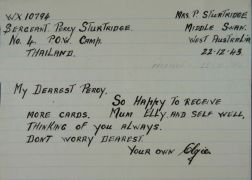 WX 10794
Sergeant Percy Sturtridge.
No. 4. P.O.W. Camp.
Thailand.
Mrs. P. Sturtridge.
Middle Swan.
West Australia
22-12-43.
My Dearest Percy.
So Happy to receive
more cards. Mum Elly and self well,
Thinking of you always.
Dont worry dearest.
Your own Elsie